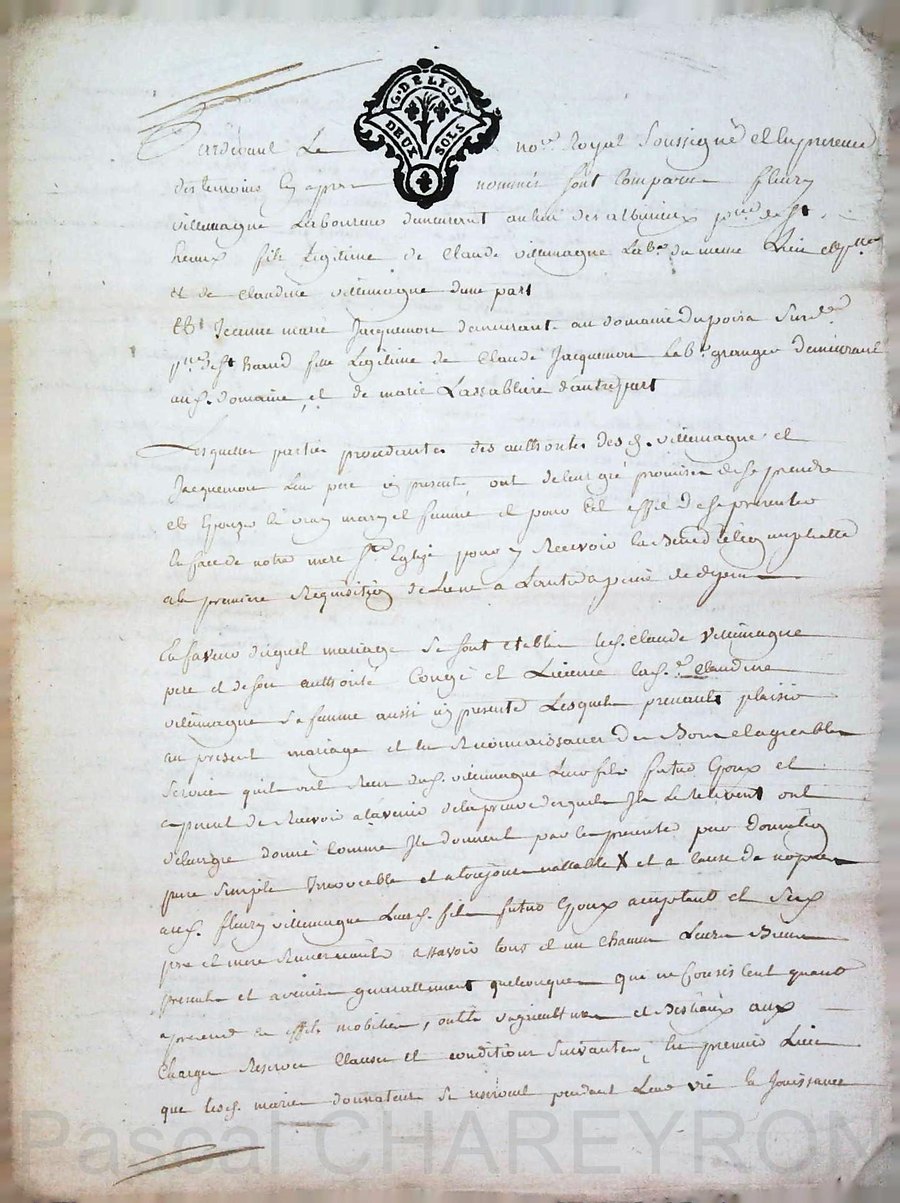 G. DE LYON
DEUX SOLS
Pardevant Le no.re Royal Soussigné et En presence
des temoins En apres nommés sont Comparus fleury
villemagne Laboureur demeurant au lieu des albinieux de st
heand fils Legitime de Claude villemagne Lab.r du meme Lieu
et de Claudine villemagne dune part
Et Jeanne marie Jacquemon demeurante au domaine du poira
de st heand fille Legitime de Claude Jacquemon Lab.r granger demeurant
aud. domaine et de marie Lassablière dautrepart
Lesquelles parties procedantes des authorités desd. villemagne et
Jacquemon Leur pere icy presents ont de leur gré promis de se prendre
et Epouser En vray mary et femme et pour cet effet de se presenter
En face de notre mere Ste Eglise pour y Recevoir la Bénédiction nuptialle
a la premiere Requisition de Lune a Lautre a peine de depens
En faveur duquel mariage se sont etablis lesd. Claude villemagne
pere et de son authorité Congé et Licence lad. Claudine
villemagne sa femme aussi icy presente Lesquels prenants plaisir
au present mariage et En Reconnaissance des Bons et agreables
services quils ont Recu dud. villemagne Leur fils futur Epoux et
Esperent de Recevoir a lavenir de la preuve desquels Ils Le Relevent ont
donné Comme Ils donnent par Ces presentes par donnation
pure simple Irrevocable et a toujours vallable X et a Cause de noples
aud. fleury villemagne Leurd. fils futur Epoux acceptant et sesd.
pere et mere Remerciant assavoir tous et un Chacun Leurs Biens
presents et avenirs generallement quelconques que ne Consistent quant
apresent En effets mobiliers, outils dagriculture et Bestiaux aux
Charges Reserves Clauses et conditions suivantes, En premier Lieu
que lesd. mariés donnateurs se reservent pendant Leur vie la Jouissance
Pascal CHAREYRON